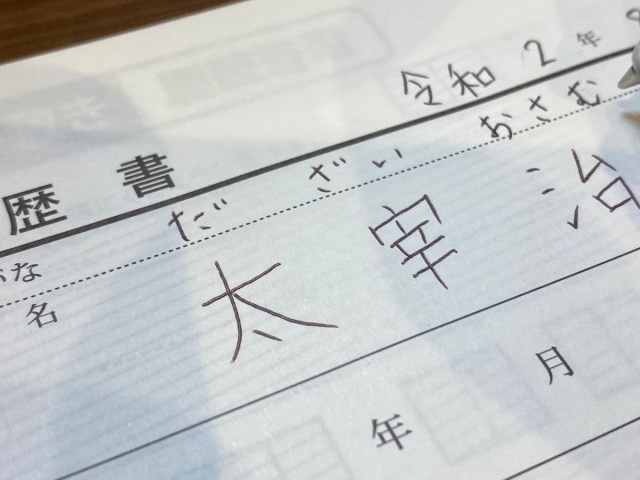 令和 2 年
歴書
がな だ ざい おさむ
名 太 宰 治
年 月